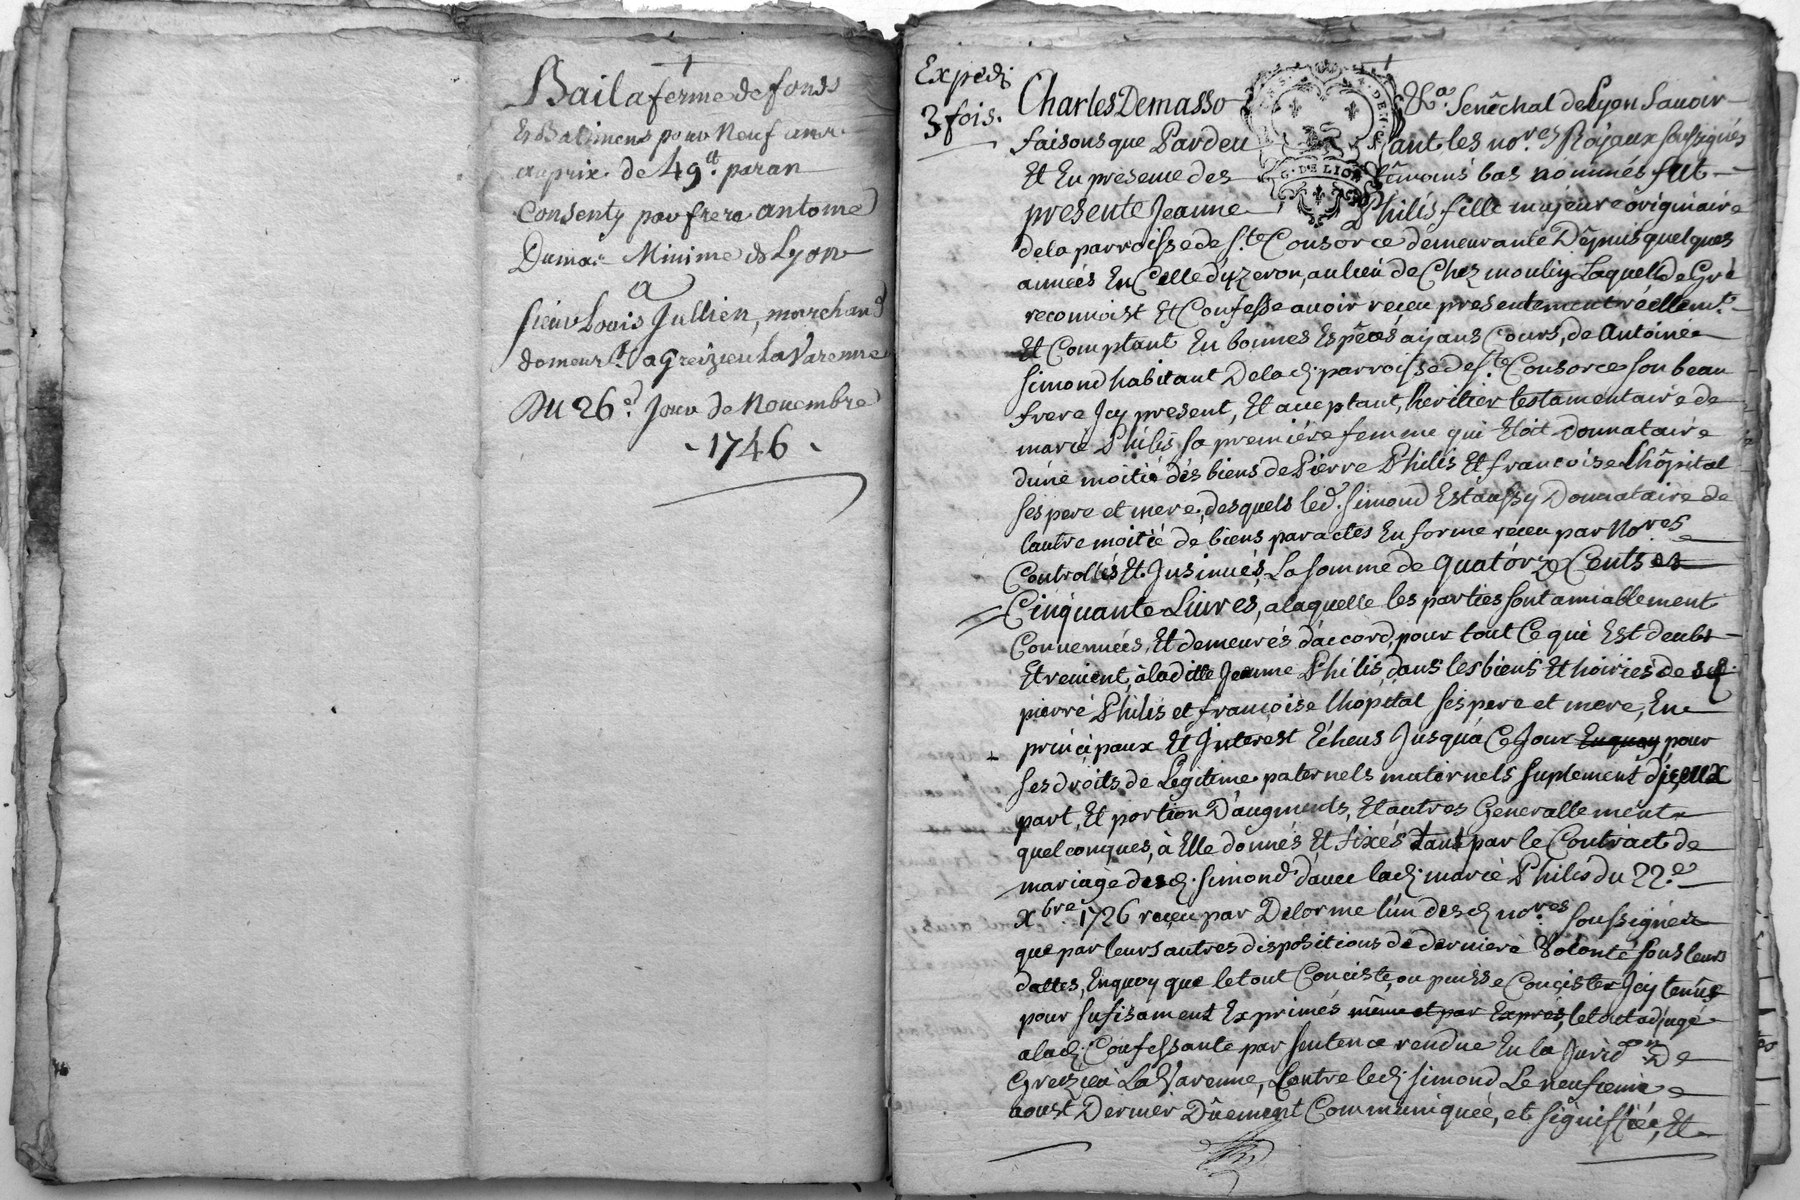 Bail a ferme de fonds
Et Batimens pour Neuf ans
au prix de 49ᵗᵗ paran
Consenty par frere antoine
Dumas Minime de Lyon
a
sieur Louis Jullien, marchand
demeurᵗ a Greizieu La Varenne
Du 26ᵉ Jour de Novembre
1746
Expédi
3 fois.
Charles Demasso &ᵃ. Senêchal de Lyon Sauoir
faisons que Pardeuant les noʳᵉˢ Royaux soussignés
Et En presence des têmoins bas nommés fut
presente Jeanne Philis fille majeure originaire
de la parroisse de sᵗᵉ Consorce demeurante Dépuis quelques
années En Celle dyzeron, au lieu de Chez moulin Laquelle de Gré
reconnoist Et Confesse auoir receu presentement réellemᵗ
Et Comptant En bonnes Espêces ayans Cours, de Antoine
Simond habitant De lad. parroisse de sᵗᵉ Consorce son beau
frere Jcy present, Et acceptant, heritier testamentaire de
marie Philis sa première femme qui Etoit Donnataire
d'une moitié des biens de Pierre Philis Et francoise Lhôpital
ses pere et mere, desquels led. Simond Est aussy Donnataire de
lautre moitié de biens par actes En forme receu par Noʳᵉˢ
Controllés Et Jnsinués, La somme de quatórze Cents et
Cinquante Liures, a laquelle les parties sont amiablement
Conuenuées, Et demeurés d'accord, pour tout Ce qui Est deubt
Et reuient, à laditte Jeanne Philis, dans les biens Et hoiries de sd.
pierre Philis et francoise lhopital ses pere et mere, En
principaux Et Jnterest Echeus Jusqua Ce Jour Enquoy pour
ses droits de Légitime paternels maternels suplement d'jceux
part, Et portion D'augments, Et autres Generallement
quelconques, à Elle donnés Et fixés tant par le Contract de
mariage desd. Simond d'auec lad. marie Philis du 22ᵉ
Xbʳᵉ 1726 receu par Delorme l'un desd. noʳᵉˢ soussignés
que par leurs autres dispositions de derniere Volonté sous leurs
dattes, Enquoy que le tout Conciste, ou puisse Conçister Jcy tenûs
pour sufisament Exprimés même et par Exprés, le tout adjugé
a lad. Confessante par sentence rendue En la Juridᵒⁿ De
Greizieu La Varenne, Contre led. Simond Le neufieme
aoust Dernier Dûement Communiquée, et signiffiée, Et